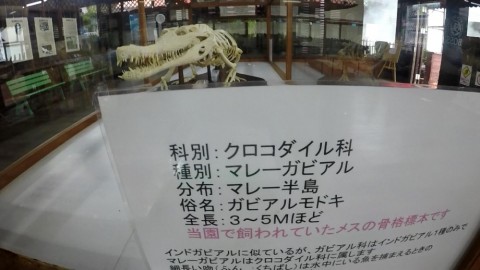 科別：クロコダイル科
種別：マレーガビアル
分布：マレー半島
俗名：ガビアルモドキ
全長：３〜５Ｍほど
当園で飼われていたメスの骨格標本です
インドガビアルに似ているが、ガビアル科はインドガビアル1種のみで
マレーガビアルはクロコダイル科に属します
細長い吻(ふん、くちばし)は水中にいる魚を捕まえるときの